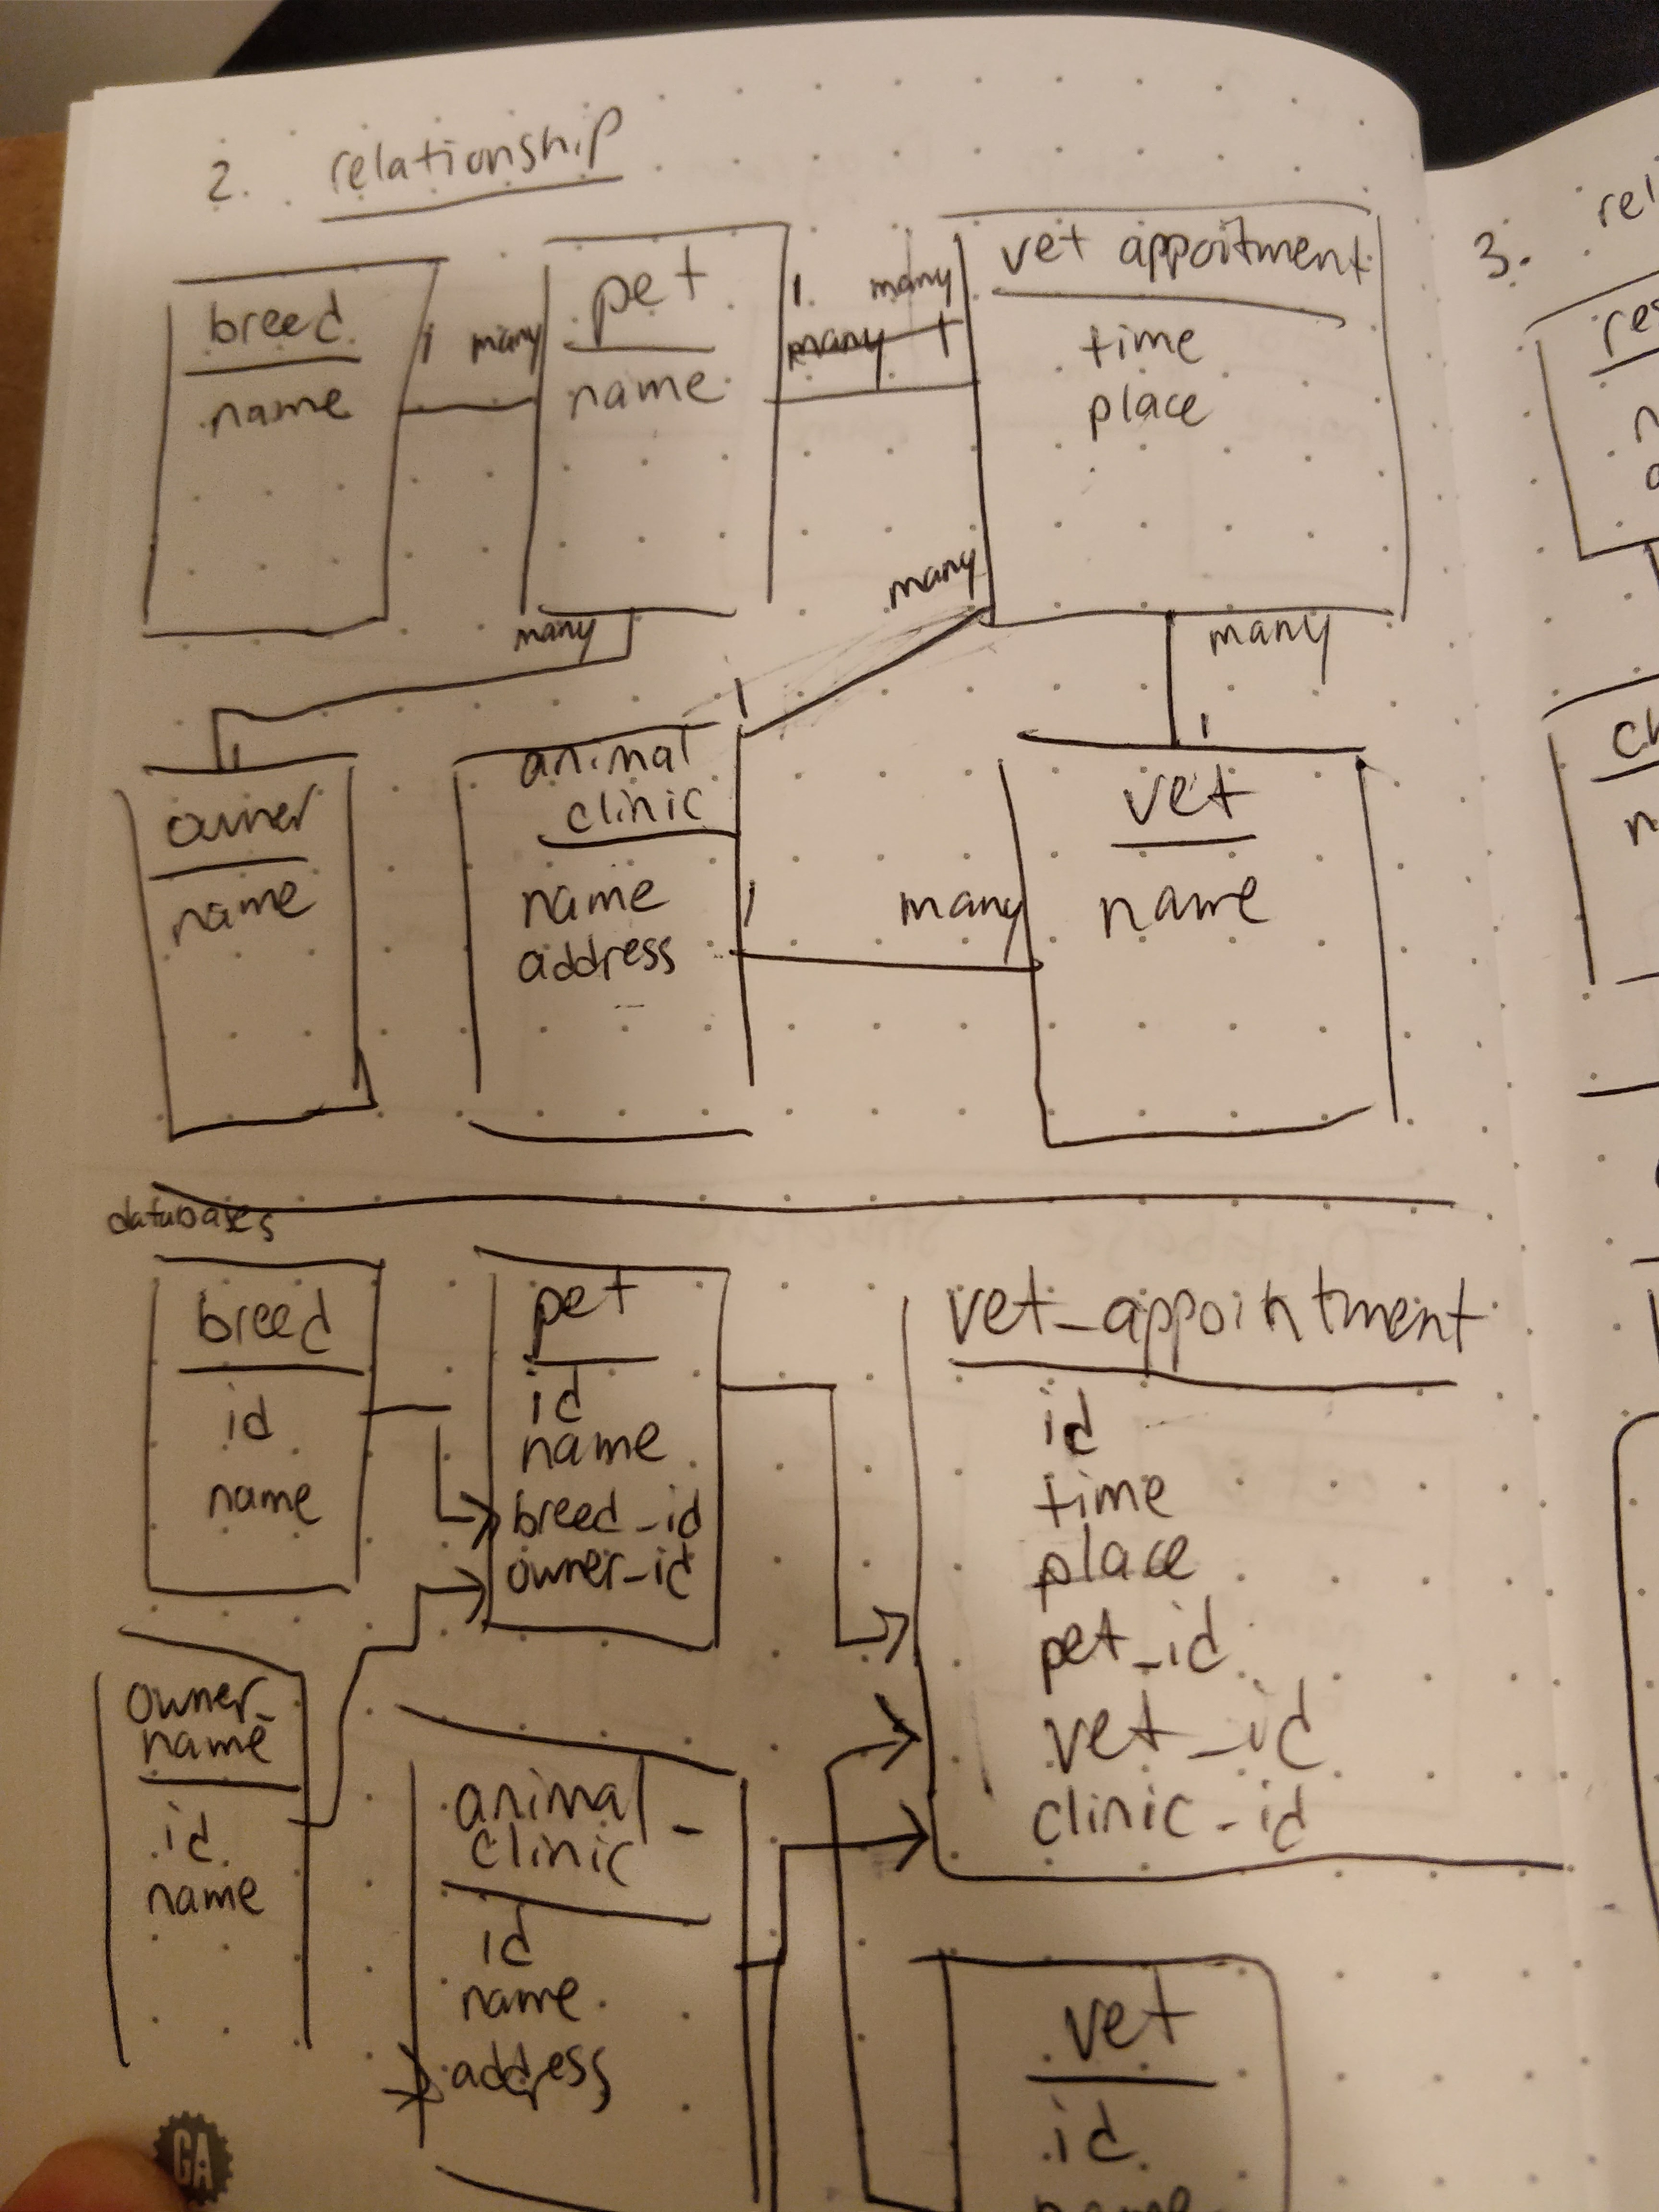 2. relationship
breed
name
1 many
pet
name
1 many
many 1
vet appoitment
time
place
many
1
owner
name
many
1
animal
clinic
name
address
1 many
many
1
vet
name
databases
breed
id
name
pet
id
name
breed_id
owner_id
vet_appointment
id
time
place
pet_id
vet_id
clinic_id
owner_
name
id
name
animal_
clinic
id
name
address
vet
id
name
GA
3. rel